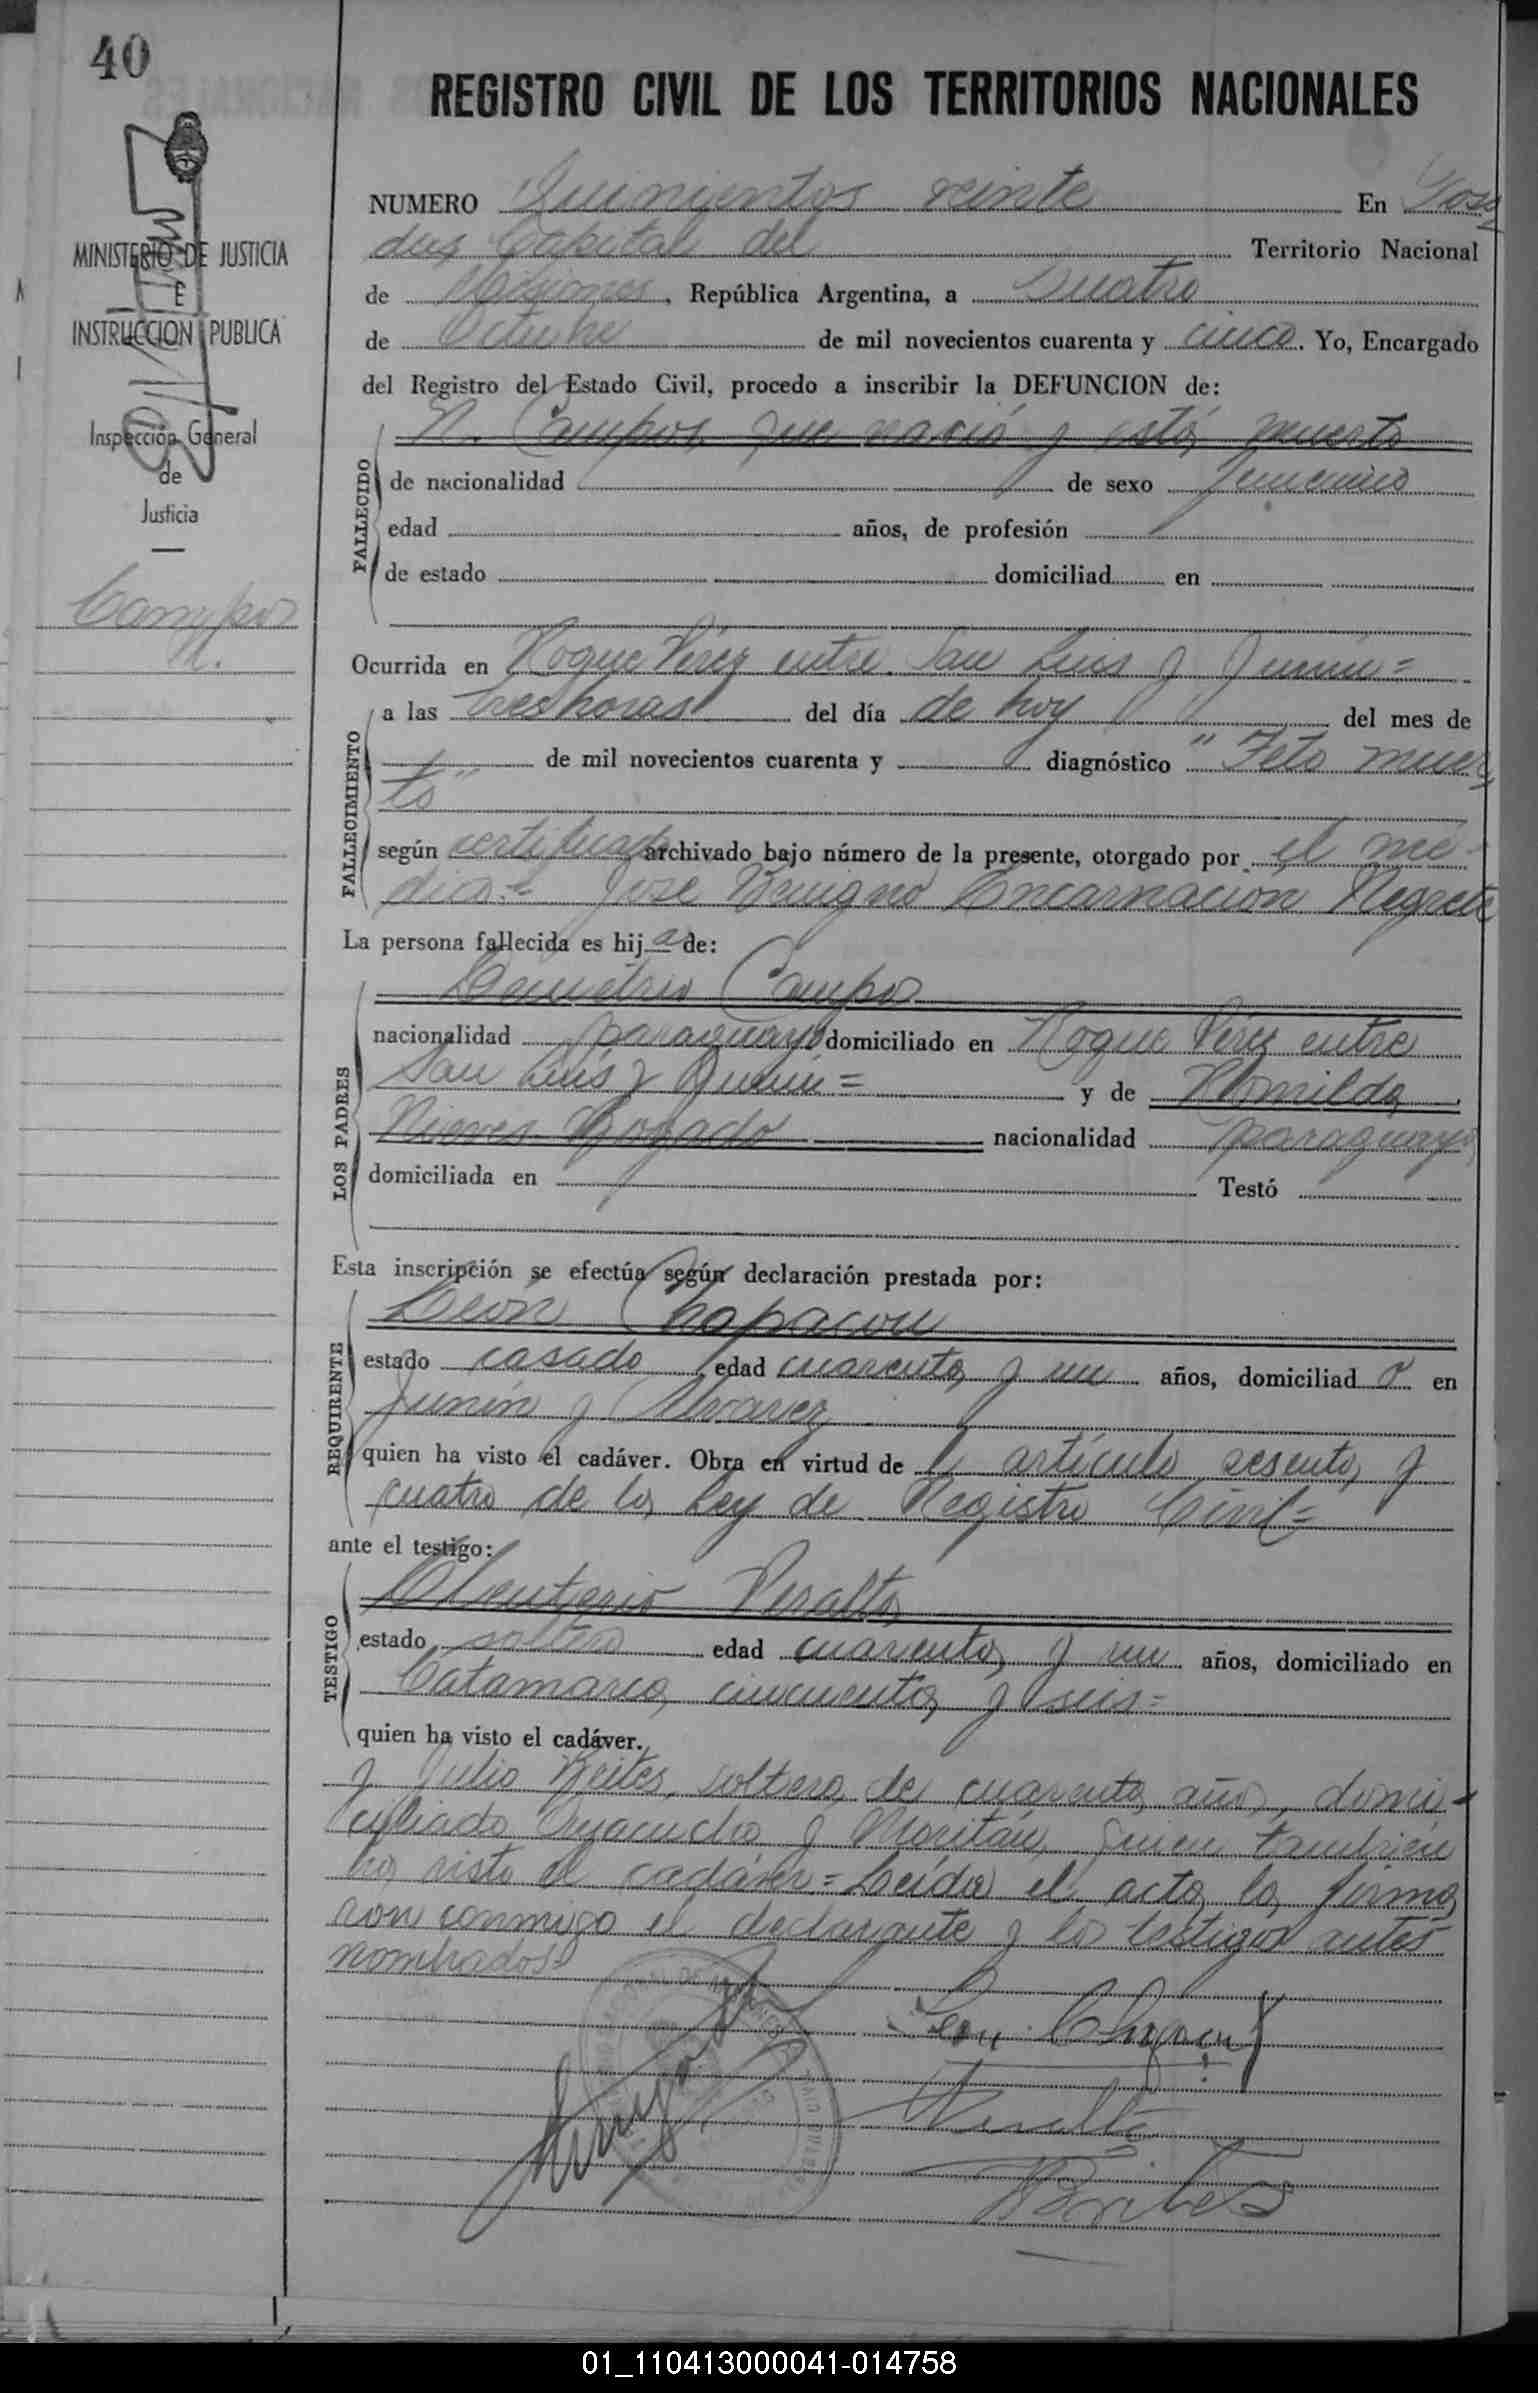 40
REGISTRO CIVIL DE LOS TERRITORIOS NACIONALES
MINISTERIO DE JUSTICIA
E
INSTRUCCION PUBLICA
Inspección General
de
Justicia
Campos
N.
NUMERO Quinientos veinte En Posa
das Capital del Territorio Nacional
de Misiones, República Argentina, a Cuatro
de Octubre de mil novecientos cuarenta y cinco. Yo, Encargado
del Registro del Estado Civil, procedo a inscribir la DEFUNCION de:
N. Campos que nació y está muerta
FALLECIDO
de nacionalidad de sexo femenino
edad años, de profesión
de estado domiciliad en
Ocurrida en Roque Pérez entre San Luis y Junín =
FALLECIMIENTO
a las tres horas del día de hoy del mes de
de mil novecientos cuarenta y diagnóstico "Feto muer
to"
según certificado archivado bajo número de la presente, otorgado por el mé-
dico José Encarnación Negrete
La persona fallecida es hija de:
LOS PADRES
Demetrio Campos
nacionalidad paraguayo domiciliado en Roque Pérez entre
San Luis y Junín = y de Romilda
Nieves Bogado nacionalidad paraguaya
domiciliada en Testó
Esta inscripción se efectúa según declaración prestada por:
REQUIRENTE
León Chapacou
estado casado edad cuarenta y un años, domiciliado en
Junín y Alvarez
quien ha visto el cadáver. Obra en virtud del artículo sesenta y
cuatro de la Ley de Registro Civil =
ante el testigo:
TESTIGO
Eleuterio Peralta
estado soltero edad cuarenta y un años, domiciliado en
Catamarca cincuenta y seis =
quien ha visto el cadáver.
y Julio Beites, soltero, de cuarenta años, domi-
ciliado Ayacucho y Moritán, quien también
ha visto el cadáver = Leída el acta la firma
ron conmigo el declarante y los testigos antes
nombrados
Peralta
01_110413000041-014758